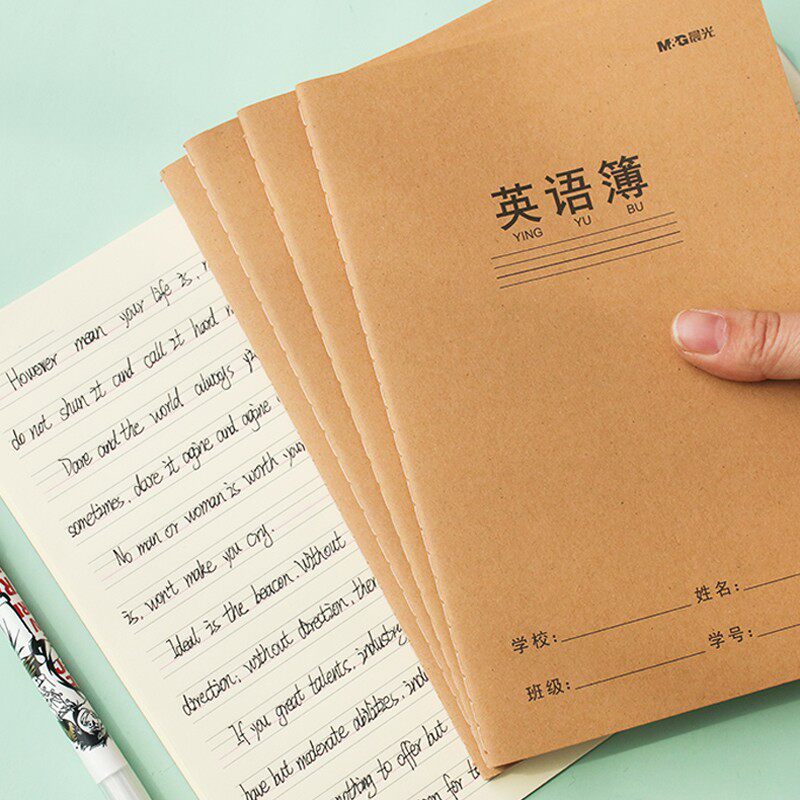 M&G晨光
英语簿
YING YU BU
姓名:
学校:
学号:
班级:
However mean your life is,
do not shun it and call it hard
Dove and the world always
sometimes, dove it agine and agine
No man or woman is worth your
is, won't make you cry.
Ideal is the beacon. Without
without direction, ther
direction;
If you great talents, industry
have but moderate abilities, indu
nothing to offer but